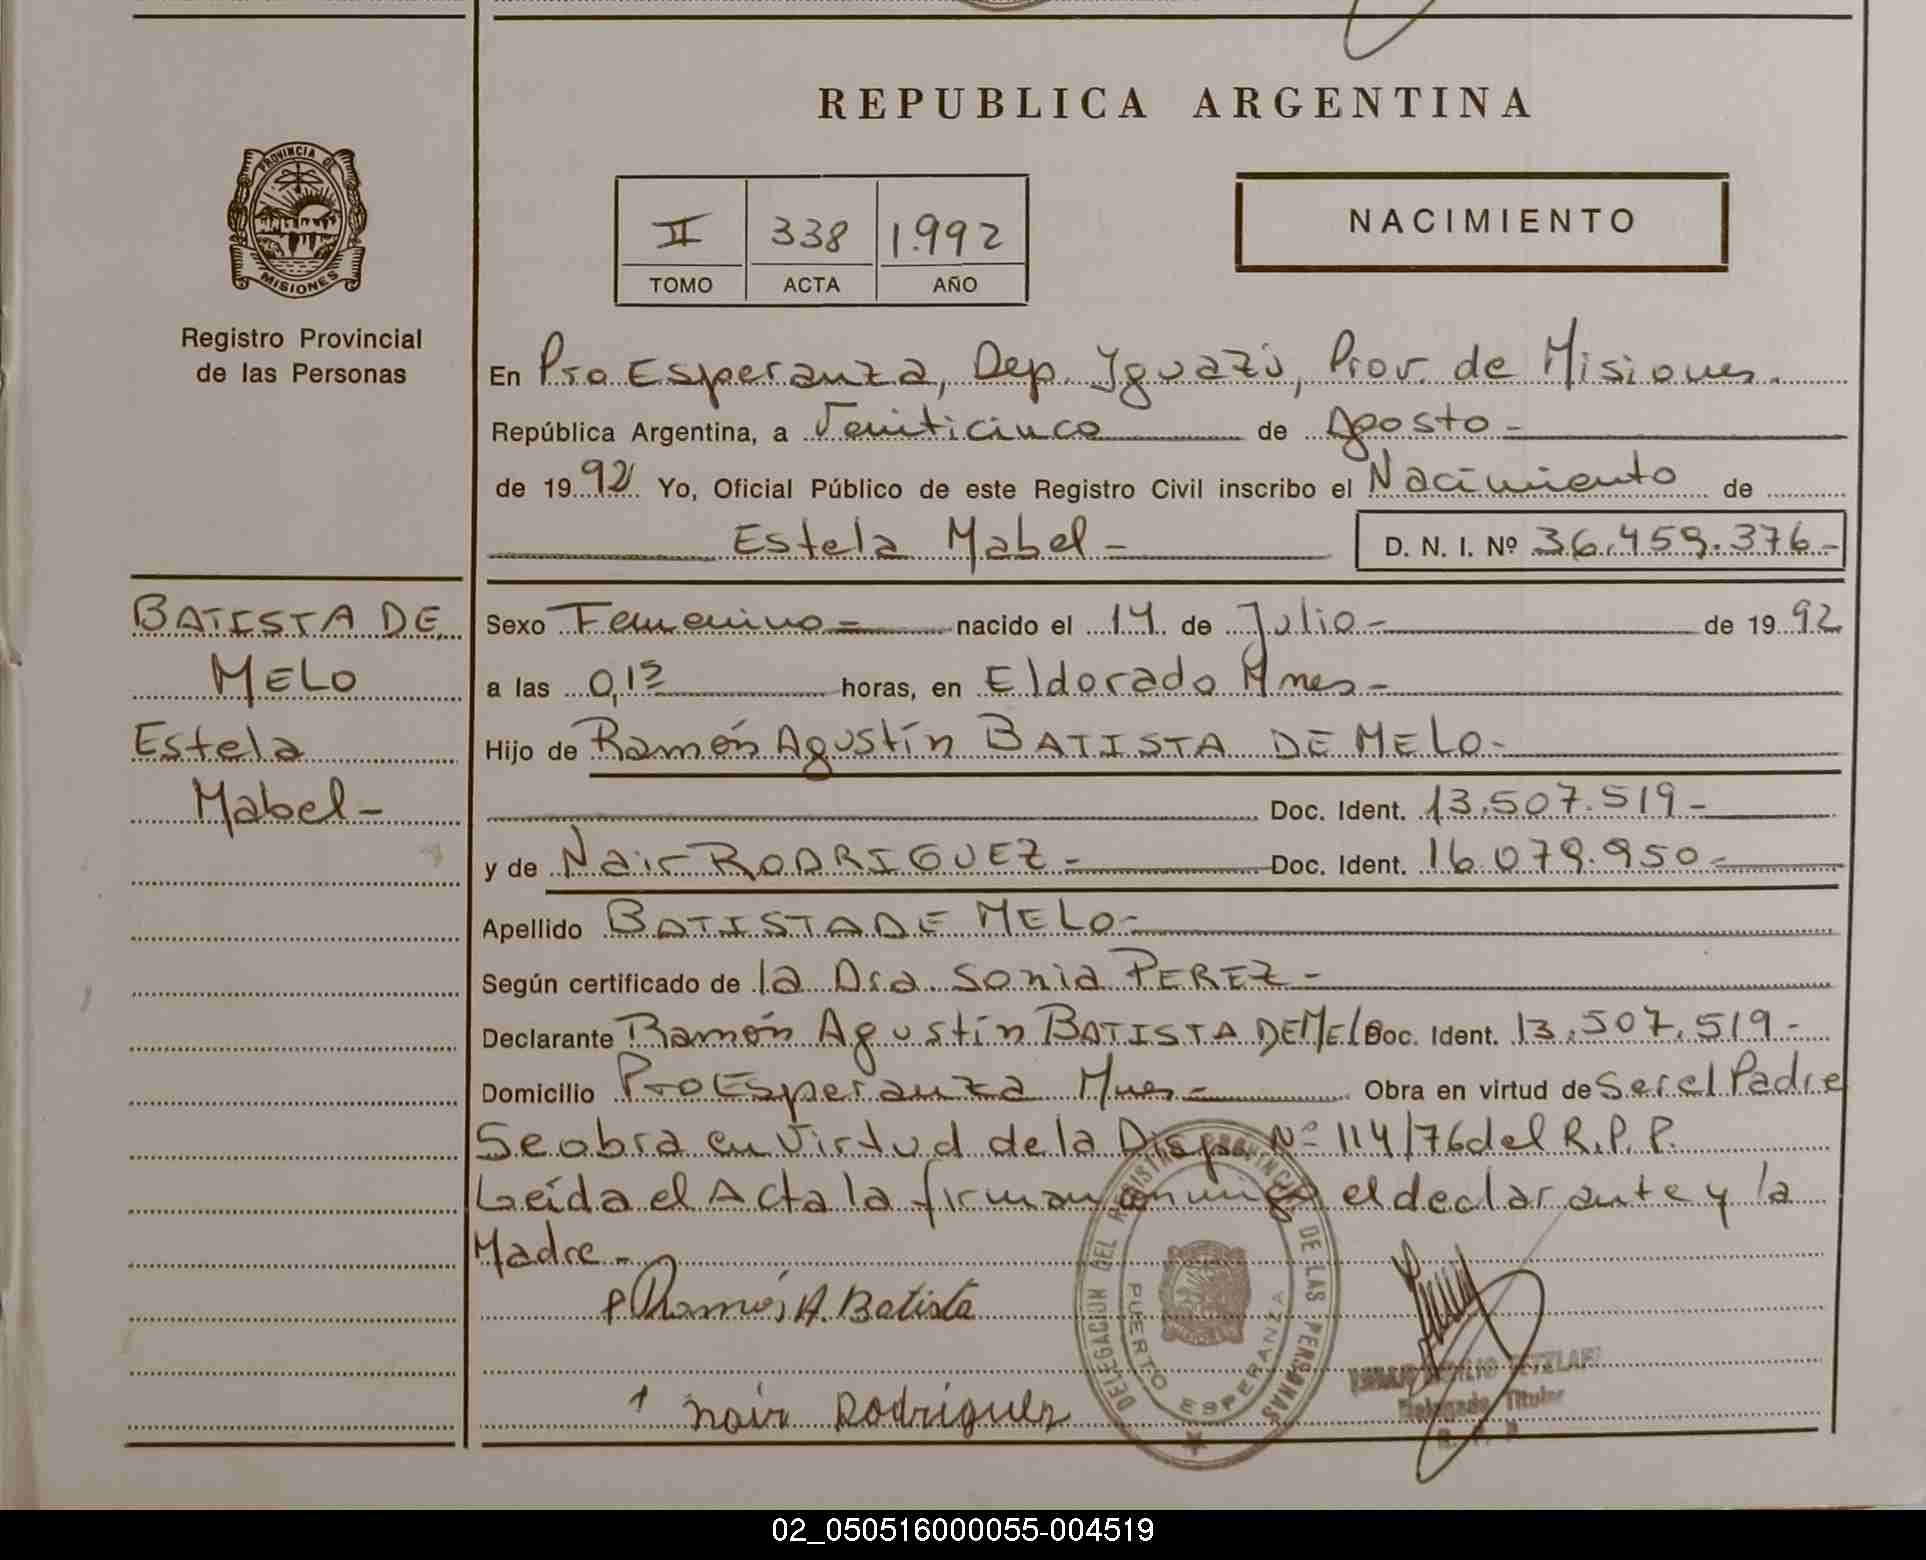 REPUBLICA ARGENTINA
PROVINCIA DE
MISIONES
Registro Provincial
de las Personas
II 338 1.992
TOMO ACTA AÑO
NACIMIENTO
En Pto Esperanza, Dep. Iguazú, Prov. de Misiones.
República Argentina, a Veniticinco de Agosto -
de 1992 Yo, Oficial Público de este Registro Civil inscribo el Nacimiento de
Estela Mabel - D. N. I. Nº 36.459.376-
BATISTA DE
MELO
Estela
Mabel -
Sexo Femenino - nacido el 14 de Julio - de 1992
a las horas, en Eldorado Mnes -
Hijo de Ramón Agustín BATISTA DE MELO -
Doc. Ident. 13.507.519 -
y de Nair RODRIGUEZ - Doc. Ident. 16.079.950 -
Apellido BATISTA DE MELO -
Según certificado de la Dra. Sonia PEREZ -
Declarante Ramón Agustín BATISTA DE MELO Doc. Ident. 13.507.519 -
Domicilio Pto Esperanza Mnes - Obra en virtud de Ser el Padre
Se obra en Virtud de la Disp. Nº 114/76 del R.P.P.
Leída el Acta la firman conmigo el declarante y la
Madre -
Ramón A. Batista
Nair Rodriguez
DELEGACION DEL REGISTRO PROVINCIAL DE LAS PERSONAS
PUERTO ESPERANZA
Delegado Titular
R. P. P
02_050516000055-004519